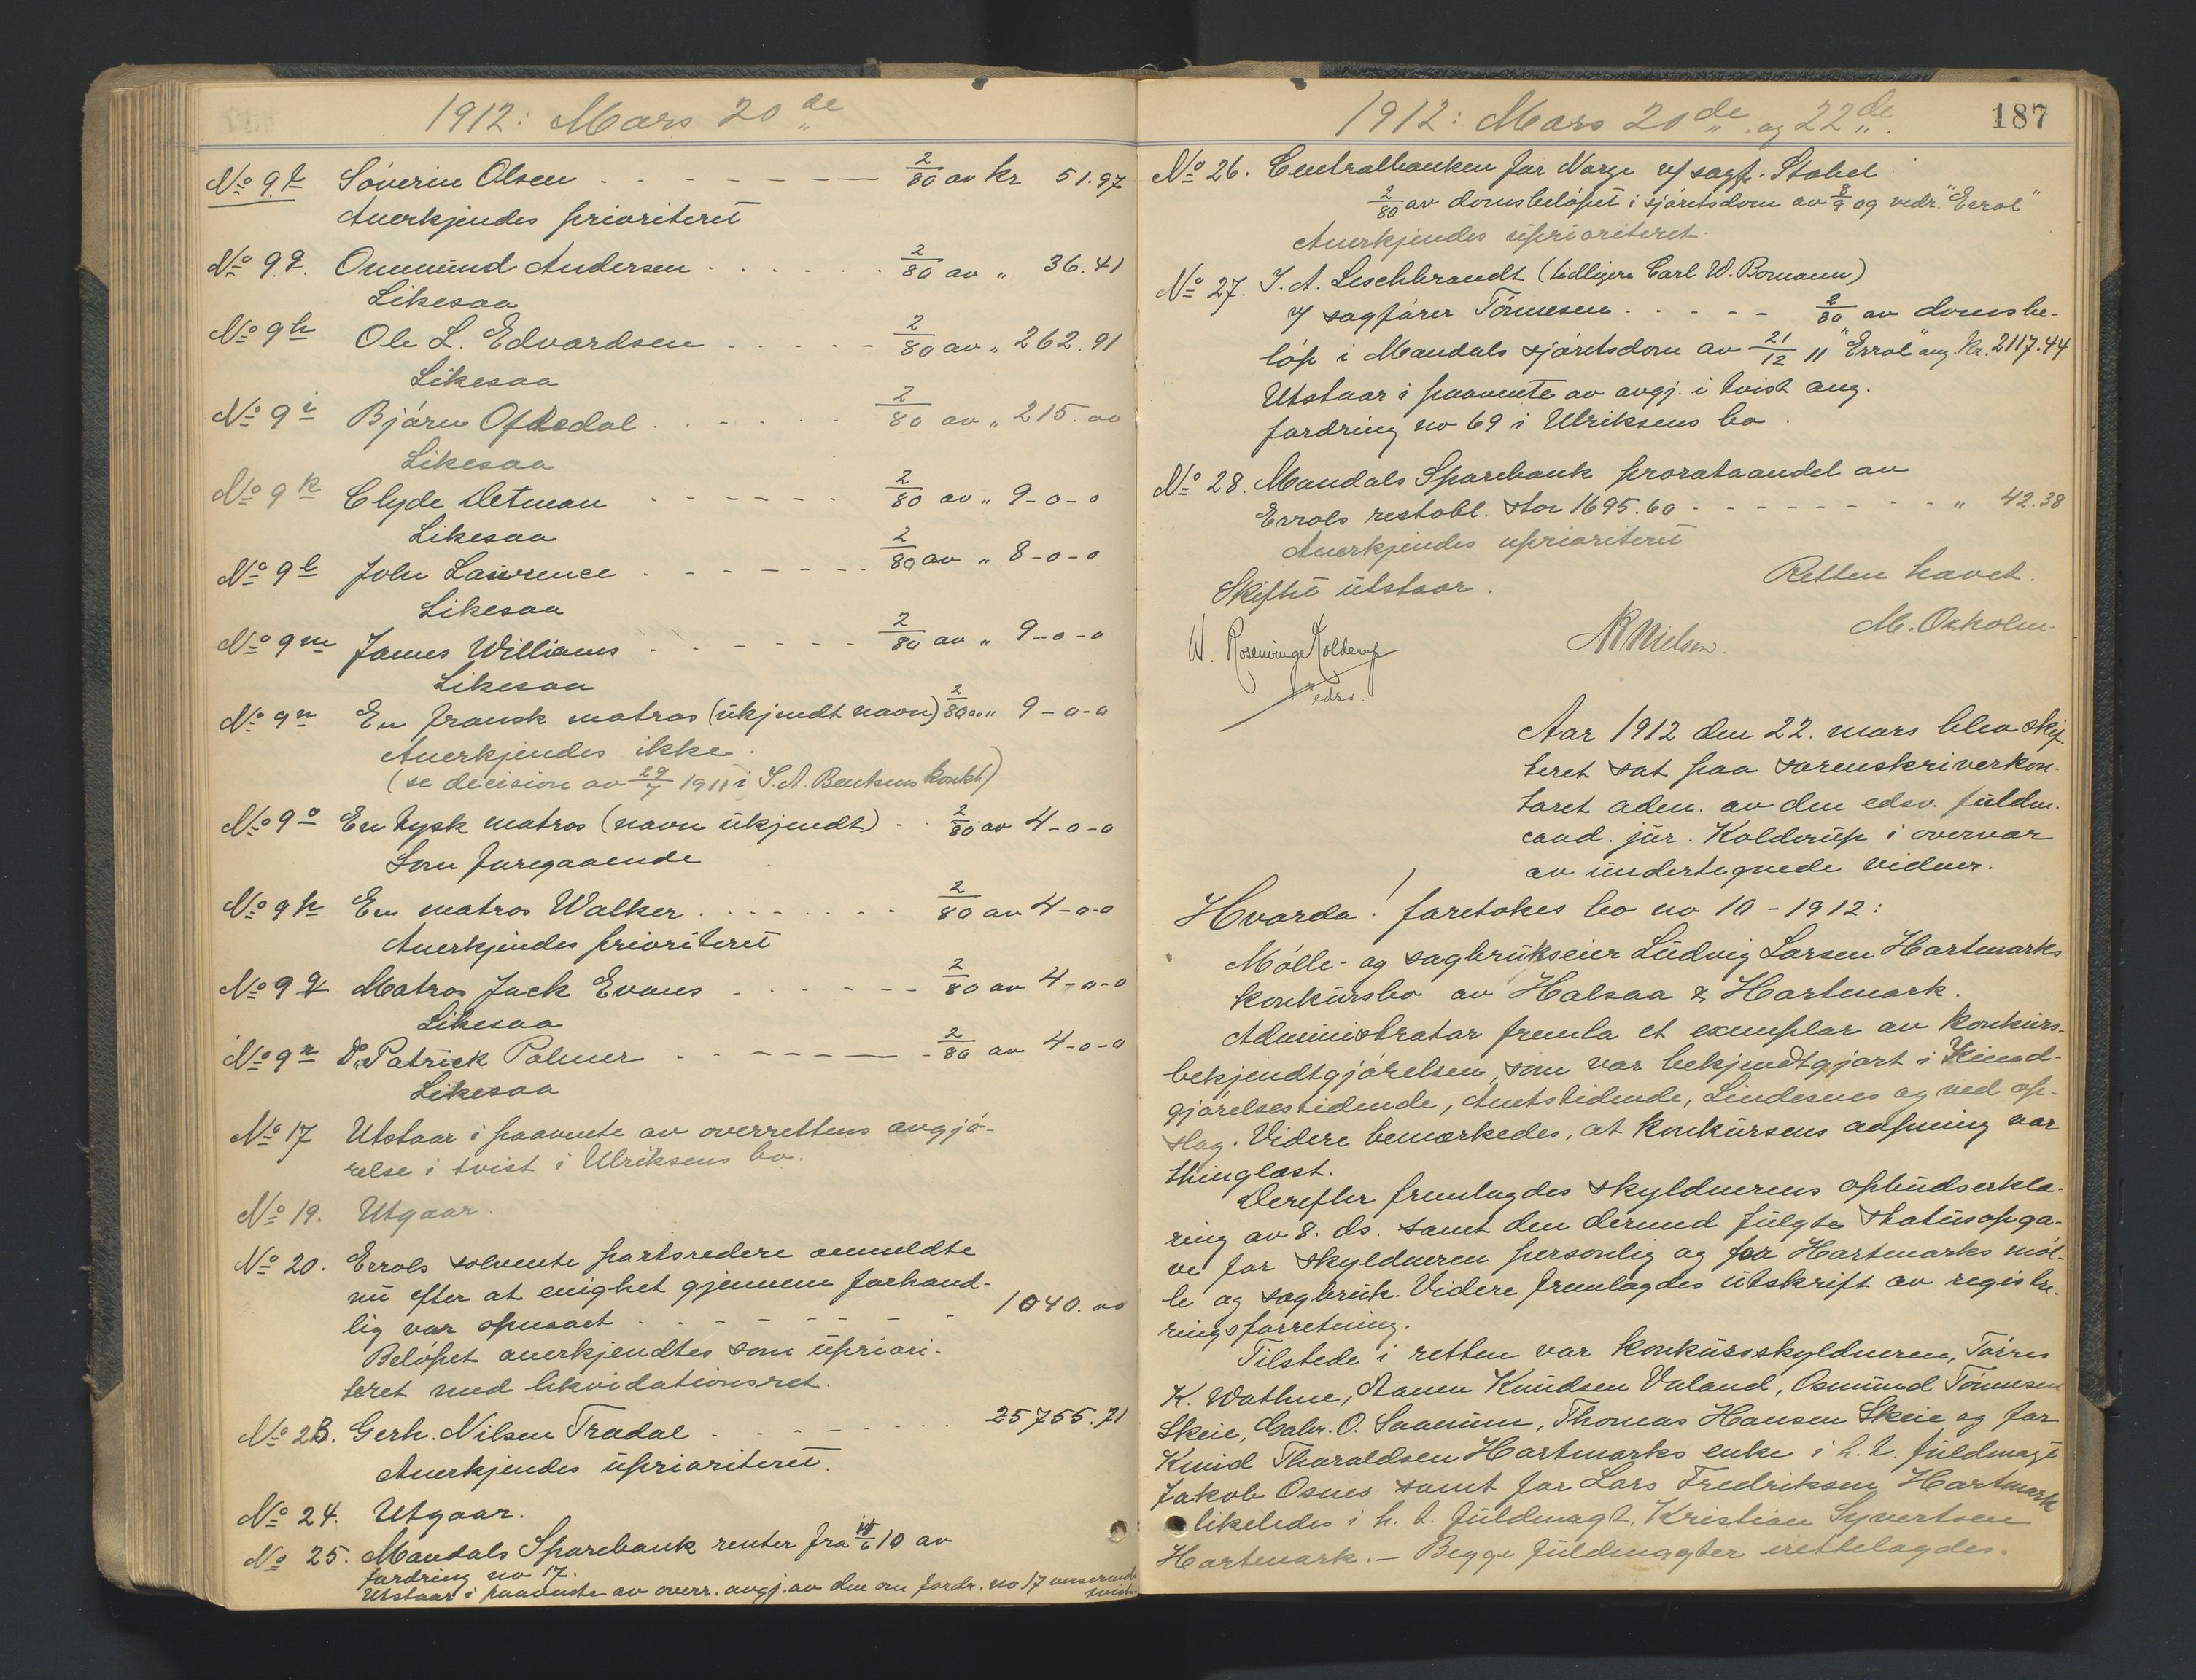 1912: Mars 20de
No 9f Söverin Olsen 2/80 av kr 51.97
Anerkjendes prioriteret
No 9g. Onmund Andersen 2/80 av " 36.41
Likesaa
No 9h Ole L. Edvardsen 2/80 av " 262.91
Likesaa
No 9i Bjärn Oftedal 2/80 av " 215.00
Likesaa
No 9k Clyde Detman 2/80 av " 9-0-0
Likesaa
No 9l John Lawrence 2/80 av " 8-0-0
Likesaa
No 9m James Williams 2/80 av " 9-0-0
Likesaa
No 9n En fransk matros (ukjendt navn) 2/80 av " 9-0-0
Anerkjendes ikke.
(se decision av 29/7 1911 i S. A. Bentsens konkb)
No 9o En tysk matros (navn ukjendt) 2/80 av 4-0-0
Som foregaaende
No 9p En matros Walker 2/80 av 4-0-0
Anerkjendes prioriteret
No 9q Matros Jack Evans 2/80 av 4-0-0
Likesaa
No 9r Do Patrick Palmer 2/80 av 4-0-0
Likesaa
No 17 Utstaar i paavente av overrettens avgjö-
relse i tvist i Ulriksens bo.
No 19. Utgaar.
No 20. Errols solvente partsredere anmeldte
nu efter at enighet gjennem forhand-
lig var opnaaet 1040.00
Belöpet anerkjendtes som upriori-
teret med likvidationsret.
No 23. Gerh. Nilsen Tradal 25755.71
Anerkjendes uprioriteret.
No 24. Utgaar.
No 25. Mandals Sparebank renter fra /6 10 av
fordring no 17.
Utstaar i paavente av overr. avgj. av den om fordr. no 17 verserende
tvist.
1912: Mars 20de og 22de. 187
No 26. Centralbanken for Norge v/ sagf. Stabel
2/80 av domsbelöpet i sjöretsdom av 8/9 09 vedr. "Errol"
Anerkjendes uprioriteret.
No 27. I. A. Leschbrandt (tidligere Carl W. Bomann)
v/ sagförer Tönnesen 2/80 av domsbe-
löp i Mandals sjöretsdom av 21/12 11 "Errol" ang. kr. 2117.44
Utstaar i paavente av avgj. i tvist ang.
fordring no 69 i Ulriksens bo.
No 28. Mandals Sparebank prorataandel av
Errols restobl. stor 1695.60 " 42.38
Anerkjendes uprioriteret
Skiftet utstaar. Retten hævet.
W. Rosenvinge Kolderup NB Nielsen. M. Oxholm
edsv.
Aar 1912 den 22. mars blev skif-
teret sat paa sorenskriverkon-
toret adm. av den edsv. fuldm.
cand. jur. Kolderup i overvær
av undertegnede vidner.
Hvorda! foretokes bo no 10-1912:
Mölle- og sagbrukseier Ludvig Larsen Hartmarks
konkursbo av Halsaa & Hartmark.
Administrator fremla et exemplar av konkurs-
bekjendtgjörelsen, som var bekjendtgjort i Kund-
gjörelsestidende, Amtstidende, Lindesnes og ved op-
slag. Videre bemerkedes, at konkursens aapning var
thinglæst.
Derefter fremlagdes skyldnerens opbudserklæ-
ring av 8. ds. samt den dermed fulgte statusopga-
ve for skyldneren personlig og for Hartmarks möl-
le og sagbruk. Videre fremlagdes utskrift av registre-
ringsforretning.
Tilstede i retten var konkursskyldneren, Törres
K. Wathne, Aanen Knudsen Valand, Osmund Tönnesen
Skeie, Gabr. O. Saanum, Thomas Hansen Skeie og for
Knud Tharaldsen Hartmarks enke i h. t. fuldmagt
Jakob Osnes samt for Lars Fredriksen Hartmark
likeledes i h. t. fuldmagt, Kristian Syvertsen
Hartmark. - Begge fuldmagter irettelagdes.